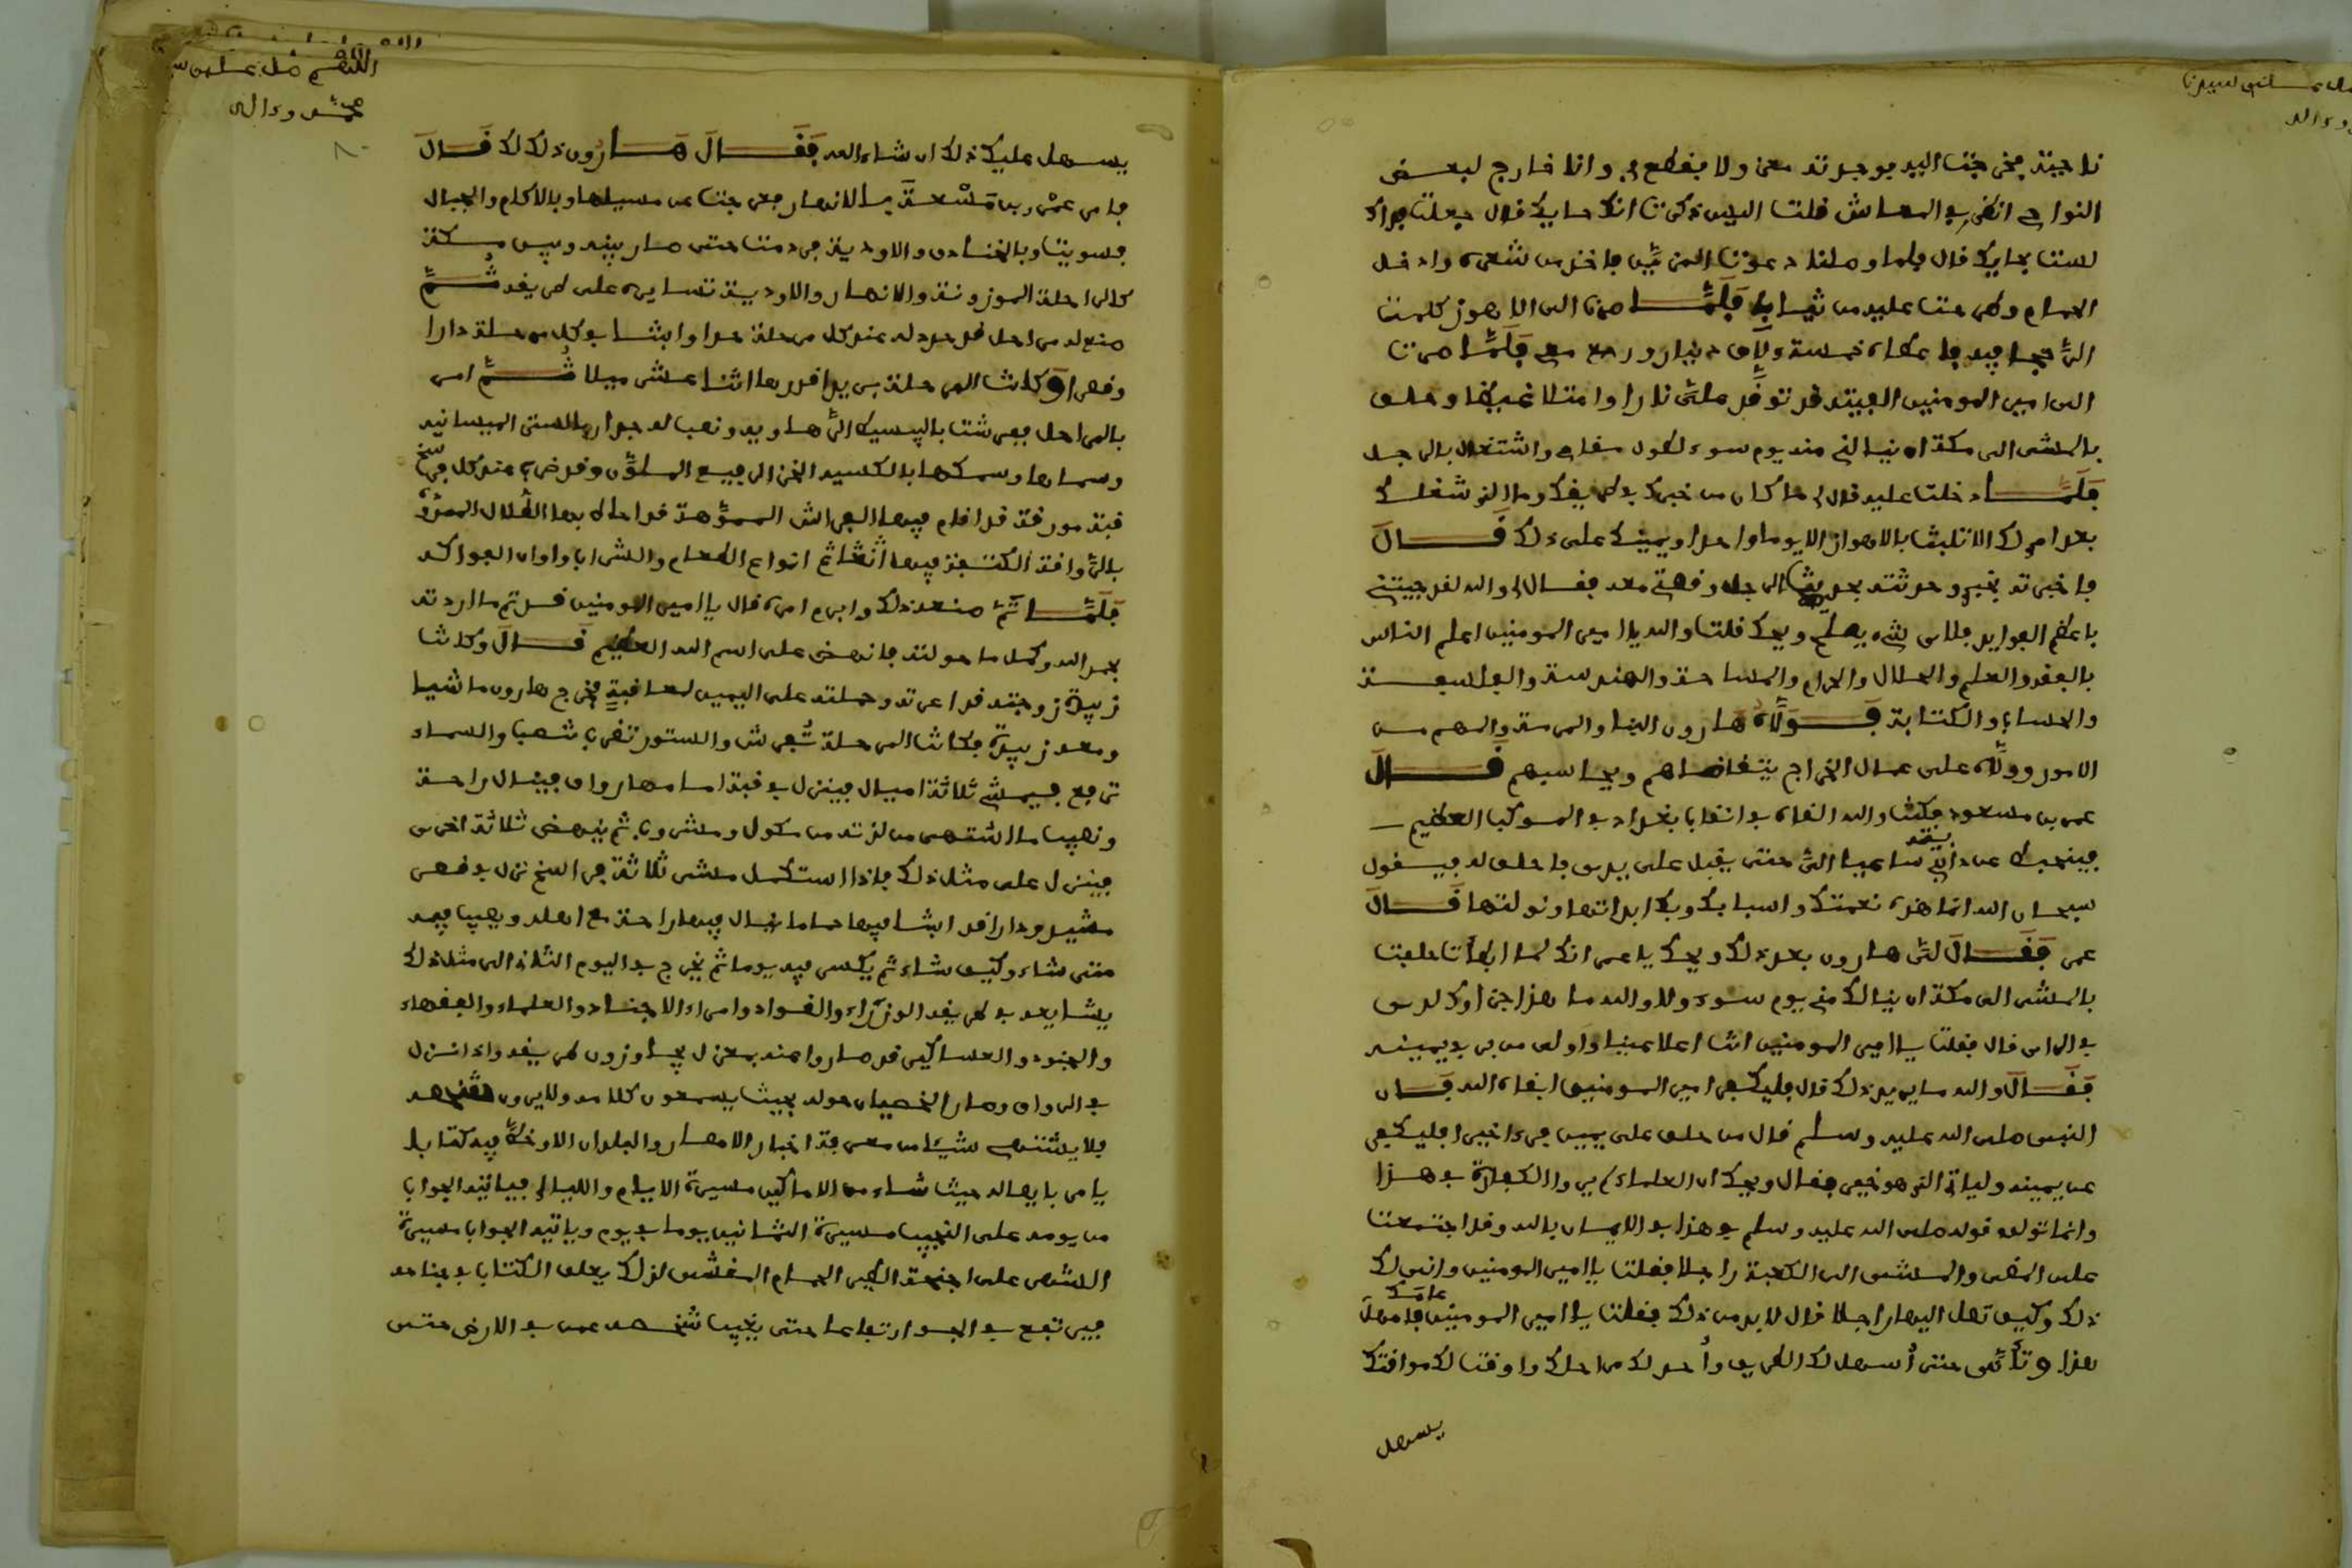 ناحيته فخرجت اليه فوجدته معي ولا يفطع بي وانا خارج لبعض
النواحي انظر في المعاش فلت اليس ذكرت انك حايك فال جعلت فداك
لست بحايك فال فلما وصلنا دعوت المزين فاخذ من شعره وادخل
الحمام وطرحت عليه من ثيابي فلما صرت الى الاهواز كلمت
الرخجي فيه فاعطاه خمسة ءالاف دينار ورجع معي فلما صرت
الى امير المومنين الفيته فد توفد علي نارا وامتلا غيظا وحلف
بالمشي الى مكة ان نيالني منه يوم سوء لطول مفامي واشتغالي بالرجل
فلما دخلت عليه فال لي ما كان من خبرك في طريفك وما الذي شغلك
بعد امري لك الا تلبث بالاهواز الا يوما واحدا ويمينك على ذلك فال
فاخبرته بخبري وحدثته بحديث الرجل وفصتي معه فقال لي والله لفد جيتني
باعظم الفوايد فلاي شيء يصلح ويحك فلت والله يا امير المومنين اعلم الناس
بالفقه والعلم والحلال والحرام والمساحة والهندسة والفلسفة
والحساب والكتابة فولاه هارون البناء والمرمة والمهم من
الامور وولاه على عمال الخراج يتفاضاهم ويحاسبهم فال
عمر بن مسعود فكنت والله الفاه في انفاب بغداد في الموكب العظيم
فينحط عن دابته ساعيا الي حتى يقبل على يدي فاحلف له فيفول
سبحان الله انما هذه نعمتك واسبابك وبك ابدانها ونولتها فال
عمر ففال لي هارون بعد ذلك ويحك يا عمر انك لما ابطات حلفت
بالمشي الى مكة ان نيالك مني يوم سوء ولا والله ما هذا جزاوك لدي
في الراي فال ففلت يا امير المومنين انت اعلا عينا واولى من بر في يمينه
ففال والله ما يريد ذلك فال فليكفر امير المومنين ابفاه الله فان
النبي صلى الله عليه وسلم فال من حلف على يمين فرءا خيرا فليكفر
عن يمينه وليات الذي هو خير ففال ويحك ان العلماء لم يروا الكفارة في هذا
وانما تولوه فوله صلى الله عليه وسلم في هذا في الايمان بالله وفد اجتمعت
على المضي والمشي الى الكعبة راجلا ففلت يا امير المومنين وانى لك
ذلك وكيف تصل اليها راجلا فال لا بد من ذلك ففلت يا امير المومنين فامهل عامك
هذا وتاني حتى اسهل لك الطريف واحد لك مراحلك واوفت لك موافتك
يسهل
يسهل عليك ذلك ان شاء الله ففال هارون ذلك لك فال
فامر عمر بن مسعدة بالانهار فعرجت عن مسيلها وبالاكام والجبال
فسويت وبالخنادق والاودية فردمت حتى صار بينه وبين مكة
كالراحلة الموزونة والانهار والاودية تسايره على طريفه ثم
صنع له مراحل فد حد له عند كل مرحلة حدا وابنتا في كل مرحلة دارا
وفصرا وكانت المرحلة بريدا فدرها اثنا عشر ميلا ثم امر
بالمراحل ففرشت بالبسط الرهاوية ونصب له جدارها بالستر الميسانية
وسماها وسمكها بالاكسية الخز الرفيع الملون وفد ضرب عند كل فرسخ
فبة مورفة فد افام فيها الفراش الممهدة فد احاط بها الظلال الممدود
بالاروافة المكتنفة فيها اثاث ثم انواع الطعام والشراب والوان الفواكه
فلما تم صنعه ذلك وابرم امره فال يا امير المومنين فد تم ما اردته
بحمد الله وكمل ما حولته فانهض على اسم الله العظيم فال وكانت
زبيدة زوجته فد اغرته وحملته على اليمين لعافبة فخرج هارون ماشيا
ومعه زبيدة فكانت المرحلة تفرش والستور تضرب شعبا والسماء
ترفع فيمشي ثلاثة اميال فينزل في فبة امامها رواف فينال راحة
ونصيب ما اشتهى من لذته من ماكول ومشروب ثم ينهض ثلاثة اخرى
فينزل على مثل ذلك فاذا استكمل مشي ثلاثة فراسخ نزل في فصر
مشيد ودار فد ابنتا فيها حماما ينال فيها راحة مع اهله ويصيب فيه
متى شاء وكيف شاء ثم يكسر فيه يوما ثم يخرج في اليوم الثاني الى مثل ذلك
يشايعه في طريفه الوزراء والفواد وامراء الاجناد والعلماء والففهاء
والجنود والعساكير فد صاروا عنه بمعزل يجاوزون طريفه واذا نزل
في الرواف وصار الخصيان حوله بحيث يسمعون كلامه ولا يرون شخصه
فلا يشتهي شيئا من معرفة اخبار الامصار والبلدان الا وخط فيه كتابا
يامر بايصاله حيث شاء من الاماكن مسيرة الايام والليالي فياتيه الجواب
من يومه على النجيب مسيرة الثمانين يوما في يوم وياتيه الجواب مسيرة
الشهر على اجنحة الطير الحمام المفشى لذلك يعلف الكتاب في جناحه
فيرتفع في الجو ارتفاعا حتى يغيب شخصه عمن في الارض حتى
اللهم صل على س
محمد وءاله